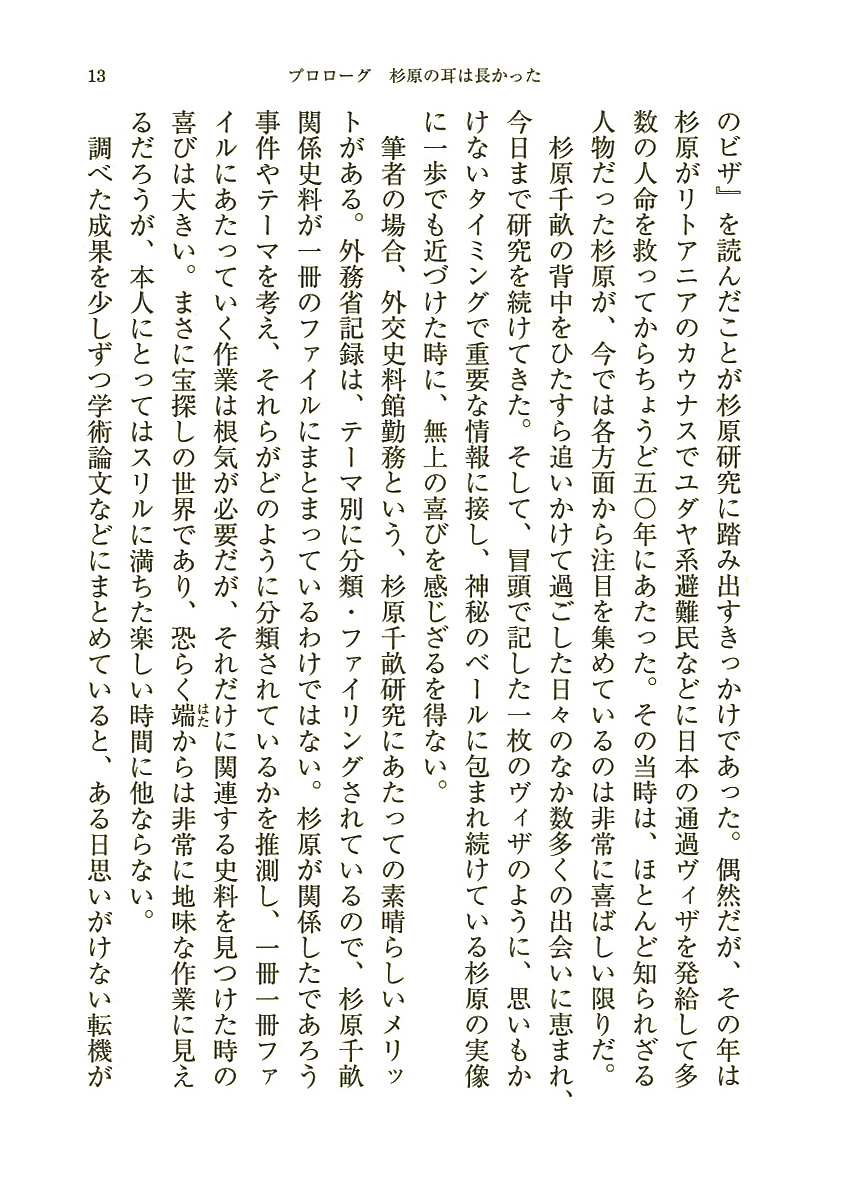 13
プロローグ　杉原の耳は長かった
のビザ』を読んだことが杉原研究に踏み出すきっかけであった。偶然だが、その年は
杉原がリトアニアのカウナスでユダヤ系避難民などに日本の通過ヴィザを発給して多
数の人命を救ってからちょうど五〇年にあたった。その当時は、ほとんど知られざる
人物だった杉原が、今では各方面から注目を集めているのは非常に喜ばしい限りだ。
　杉原千畝の背中をひたすら追いかけて過ごした日々のなか数多くの出会いに恵まれ、
今日まで研究を続けてきた。そして、冒頭で記した一枚のヴィザのように、思いもか
けないタイミングで重要な情報に接し、神秘のベールに包まれ続けている杉原の実像
に一歩でも近づけた時に、無上の喜びを感じざるを得ない。
　筆者の場合、外交史料館勤務という、杉原千畝研究にあたっての素晴らしいメリッ
トがある。外務省記録は、テーマ別に分類・ファイリングされているので、杉原千畝
関係史料が一冊のファイルにまとまっているわけではない。杉原が関係したであろう
事件やテーマを考え、それらがどのように分類されているかを推測し、一冊一冊ファ
イルにあたっていく作業は根気が必要だが、それだけに関連する史料を見つけた時の
喜びは大きい。まさに宝探しの世界であり、恐らく端からは非常に地味な作業に見え
はた
るだろうが、本人にとってはスリルに満ちた楽しい時間に他ならない。
　調べた成果を少しずつ学術論文などにまとめていると、ある日思いがけない転機が